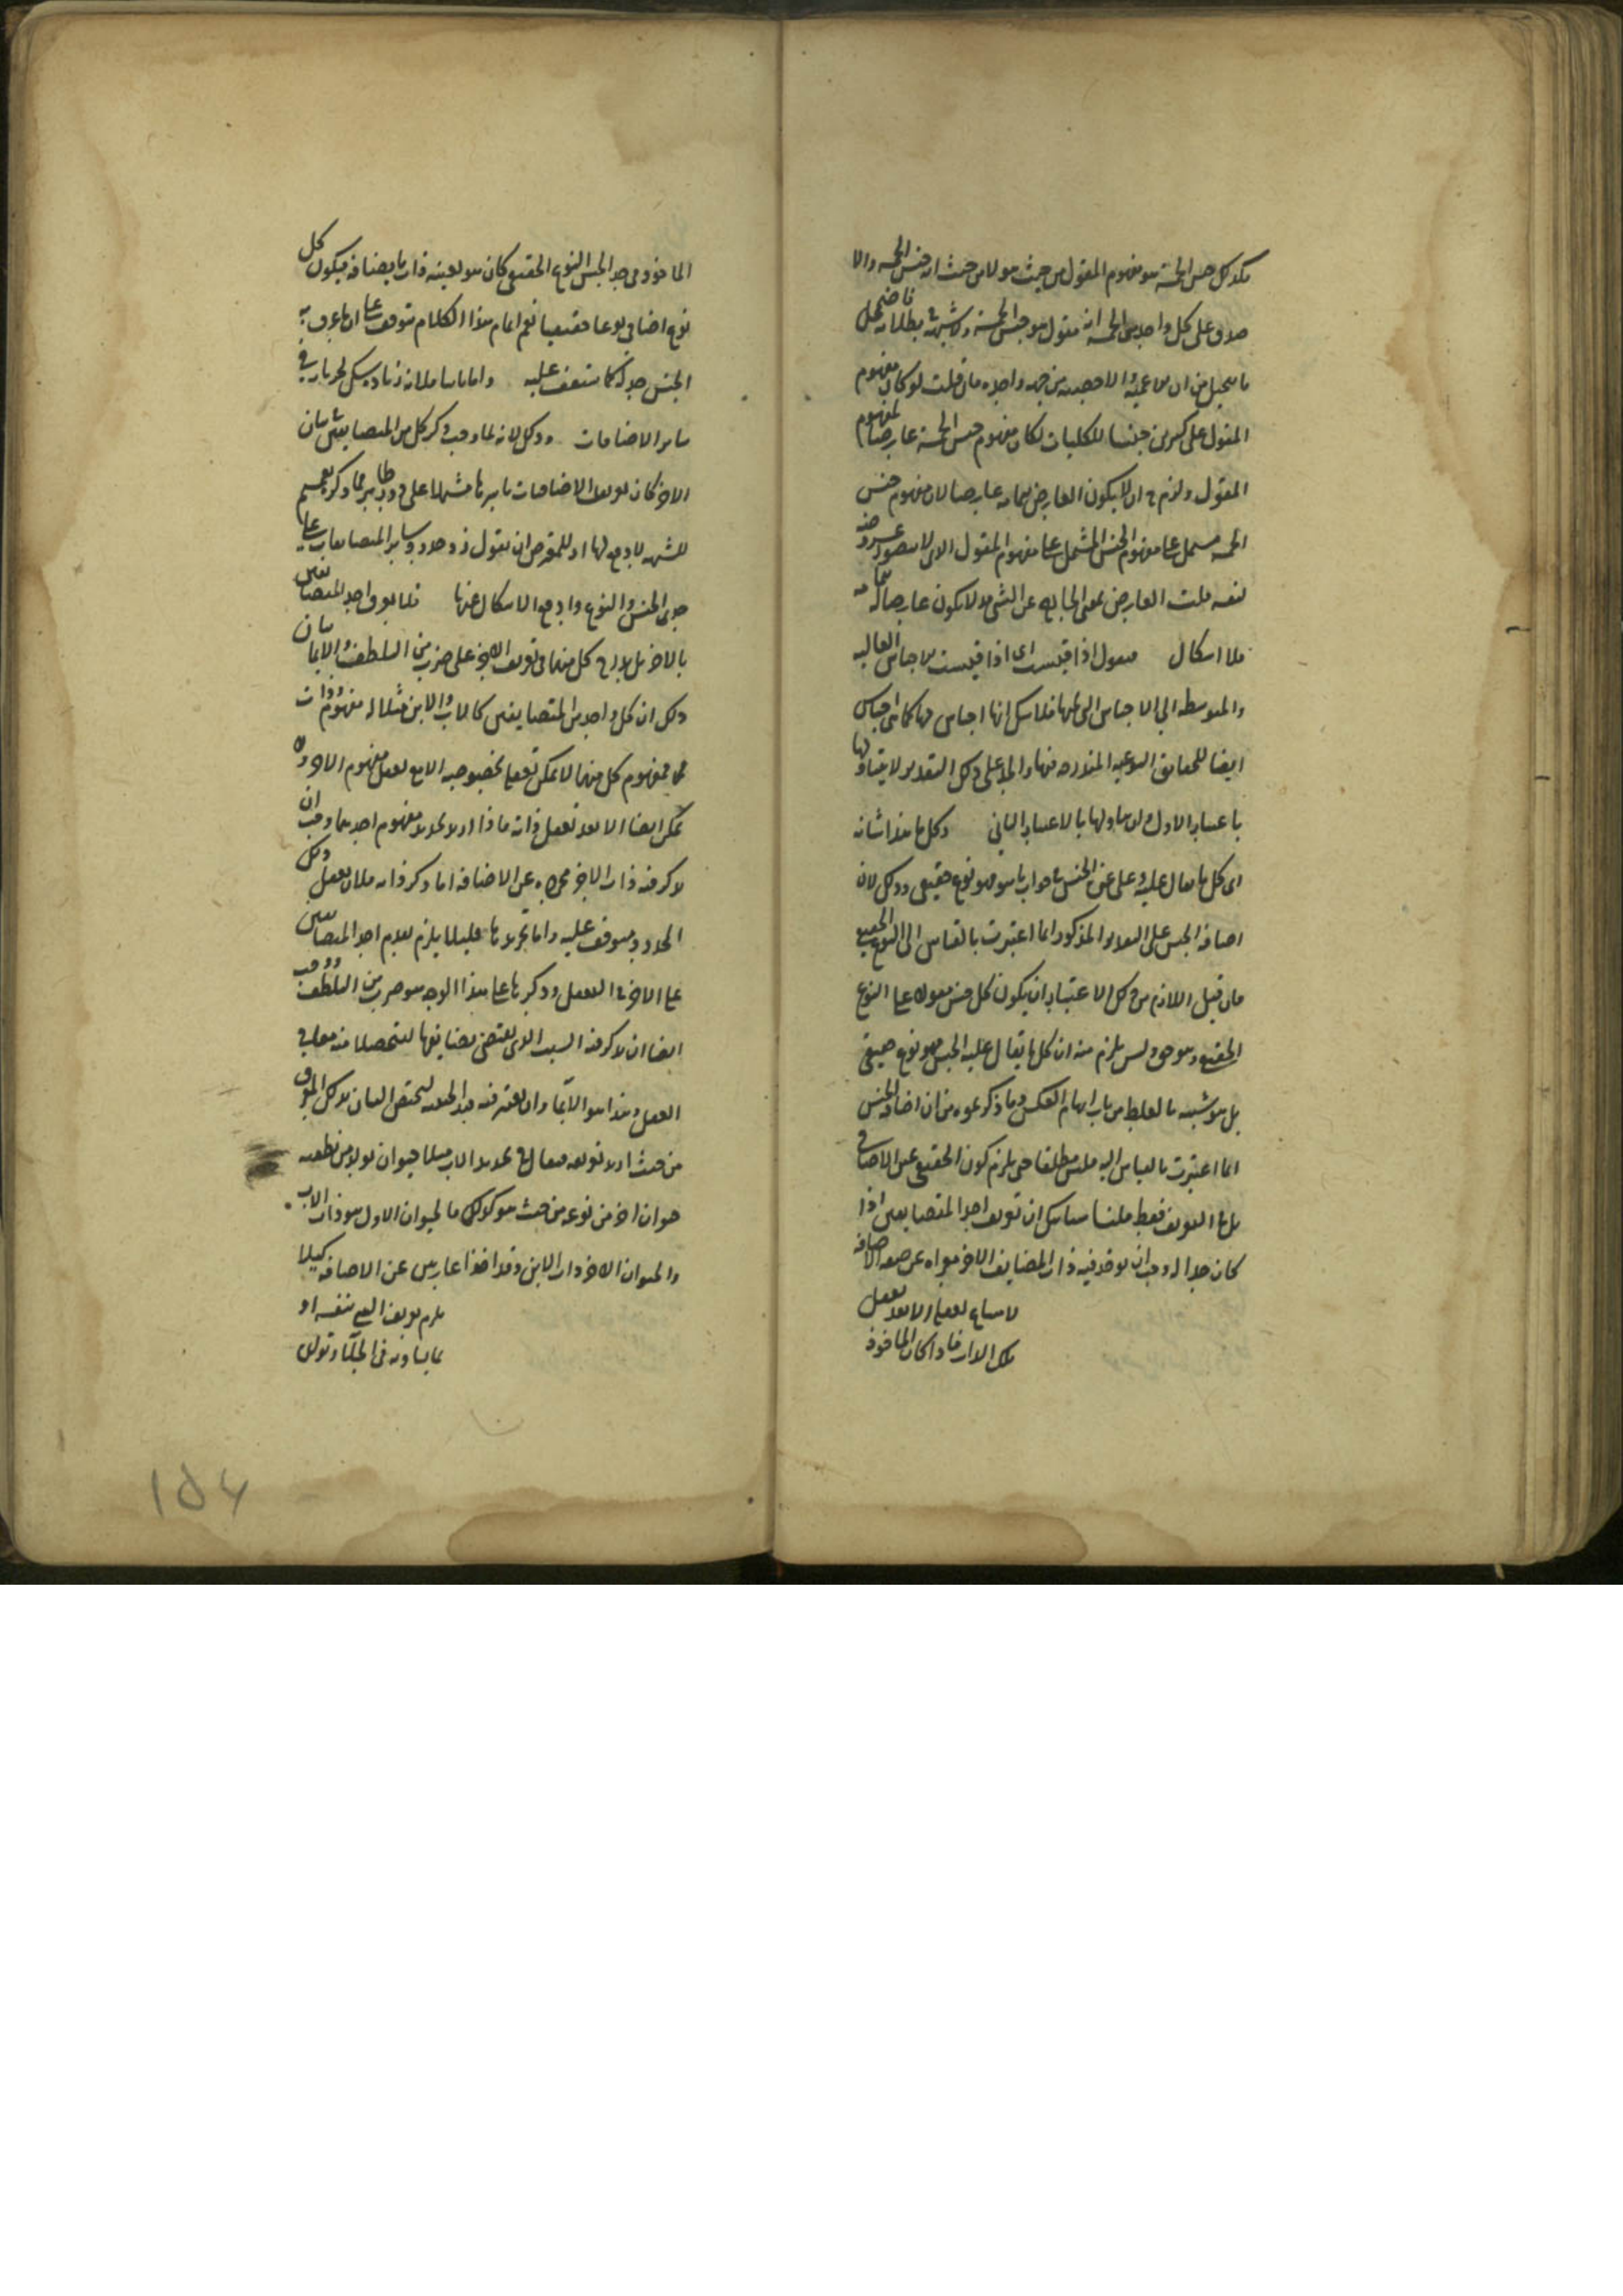 فكذلك جنس الخمسة هو مفهوم المقول من حيث هو لا من حيث انه جنس الخمسة والا
صدق على كل واحد من الخمسة انه مقول هو جنس الخمسة ولا شبهة في بطلانه فاضمحل
ما يتخيل من ان الاعمية والاخصية من جهة واحدة فان قلت لو كان مفهوم
المقول على كثيرين جنسا للكليات لكان مفهوم جنس الخمسة عارضا لمفهوم
المقول ولزم ان لا يكون العارض بتمامه عارضا لان مفهوم جنس
الخمسة مشتمل على مفهوم الجنس المشتمل على مفهوم المقول الذي لا يتصور عروضه
لنفسه قلت العارض بمعنى الخارج عن الشي قد لا يكون عارضا له بتمامه
فلا اشكال فنقول اذا قيست اى اذا قيست الاجناس العالية
والمتوسطة الى الاجناس التي تحتها فلا شك انها اجناس لها كما هي اجناس
ايضا للحقائق النوعية المندرجة فيها والحد على ذلك التقدير لا يتناولها
باعتبار الاول وان تناولها بالاعتبار الثاني وكل ما هذا شانه
اى كل ما يقال عليه وعلى غيره الجنس في جواب ما هو فهو نوع حقيقي وذلك لان
اضافة الجنس على التقدير المذكور انما اعتبرت بالقياس الى النوع الحقيقي
فان قيل اللازم من ذلك الاعتبار ان يكون كل جنس مقولا على النوع
الحقيقي وهو حق وليس يلزم منه ان كل ما يقال عليه الجنس فهو نوع حقيقي
بل هو شبيه بالغلط من باب ايهام العكس وما ذكرتموه من ان اضافة الجنس
انما اعتبرت بالقياس اليه فليس مطلقا حتى يلزم كون الحقيقي عين الاضافي
بل في التعريف فقط قلنا لا شك ان تعريف احد المتضايفين اذا
كان حدا له وجب ان يوخذ فيه ذات المضايف الاخر معراه عن صفة الاضافة
لامتناع تعقلها الا بعد تعقل
تلك الذات فاذا كان الماخوذ
الماخوذ في حد الجنس النوع الحقيقي كان هو بعينه ذات ما يضايفه فيكون كل
نوع اضافي نوعا حقيقيا نعم اتمام هذا الكلام يتوقف على ان ما عرف به
الجنس حد له كما ستقف عليه واما ثانيا فلانه زيادة شك بجريانه في
سائر الاضافات وذلك لانه لما وجب ذكر كل من المتضايفين في بيان
الاخر كان تعريف الاضافات باسرها مشتملا على دور ظاهر فما ذكره تعميم
للشبهة لا دفع لها اذ للمعترض ان يقول في حدود سائر المتضايفات على
حدى الجنس والنوع وادفع الاشكال عنها فلا يعرف احد المتضايفين
بالاخر بل يدرج كل منهما في تعريف الاخر على ضرب من التلطف والاتيان
وذلك ان كل واحد من المتضايفين كالاب والابن مثلا له مفهوم وذات
فمفهوم كل منهما لا يمكن تعقله بخصوصيه الا مع تعقل مفهوم الاخر ولا
يمكن ايضا الا بعد تعقل ذاته فاذا اريد تحديد مفهوم احدهما وجب ان
يذكر فيه ذات الاخر مجردة عن الاضافة اما ذكر ذاته فلان تعقل ذلك
المحدود متوقف عليه واما تجريدها فلئلا يلزم تقدم احد المتضايفين
على الاخر في التعقل وذكرها على هذا الوجه هو ضرب من التلطف ووجب
ايضا ان يذكر فيه السبب الذي يقتضي تضايفهما ليتحصلا منه معا في
العقل وهذا هو الاتيان وان يعتبر فيه قيد الحيثية ليختص البيان بذلك المعرف
من حيث اريد تعريفه فيقال في تحديد الاب مثلا حيوان تولد من نطفته
حيوان اخر من نوعه من حيث هو كذلك فالحيوان الاول هو ذات الاب
والحيوان الاخر ذات الابن وقد اخذا عاريين عن الاضافة كيلا
يلزم تعريف الشي بنفسه او
بما يساويه في الجلاء وتولد
۱۵۴